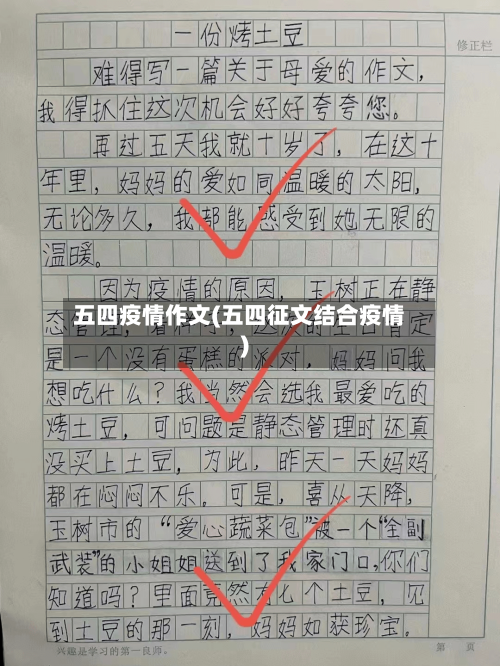 一份烤土豆
修正栏
难得写一篇关于母爱的作文，
我得抓住这次机会好好夸夸您。
再过五天我就十岁了，在这十
年里，妈妈的爱如同温暖的太阳，
无论多久，我都能感受到她无限的
温暖。
因为疫情的原因，玉树正在静
五四疫情作文(五四征文结合疫情
)
态管理，
是一个没有蛋糕的派对，妈妈问我
想吃什么？我当然会选我最爱吃的
烤土豆，可问题是静态管理时还真
没买上土豆，为此，昨天一天妈妈
都在闷闷不乐。可是，喜从天降，
玉树市的“爱心蔬菜包”被一个“全副
武装”的小姐姐送到了我家门口，你们
知道吗？里面竟然有七个土豆，见
到土豆的那一刻，妈妈如获珍宝。
兴趣是学习的第一良师。
第 页